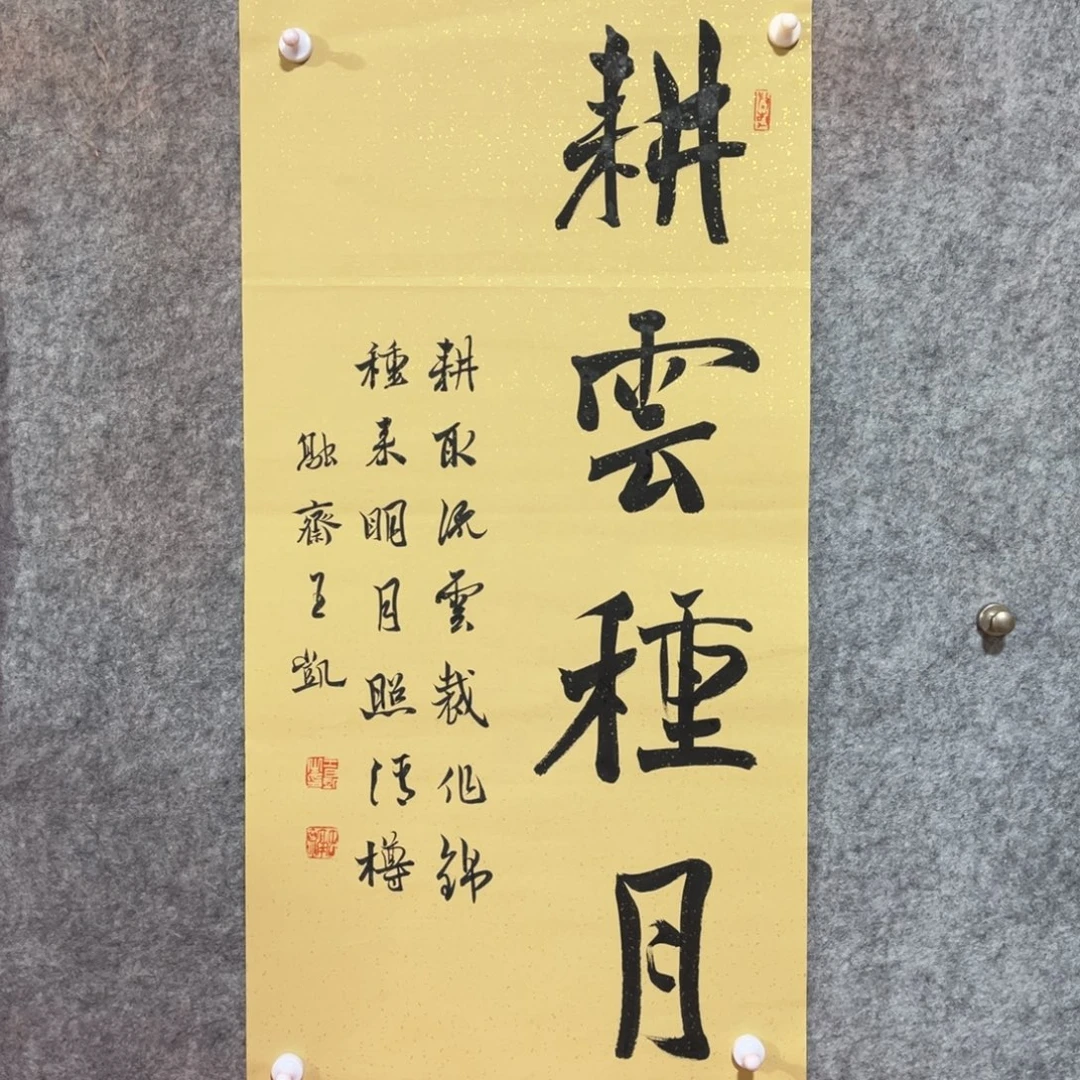 耕雲種月
耕取流雲裁作錦
種来明月照清樽
融齋王凱